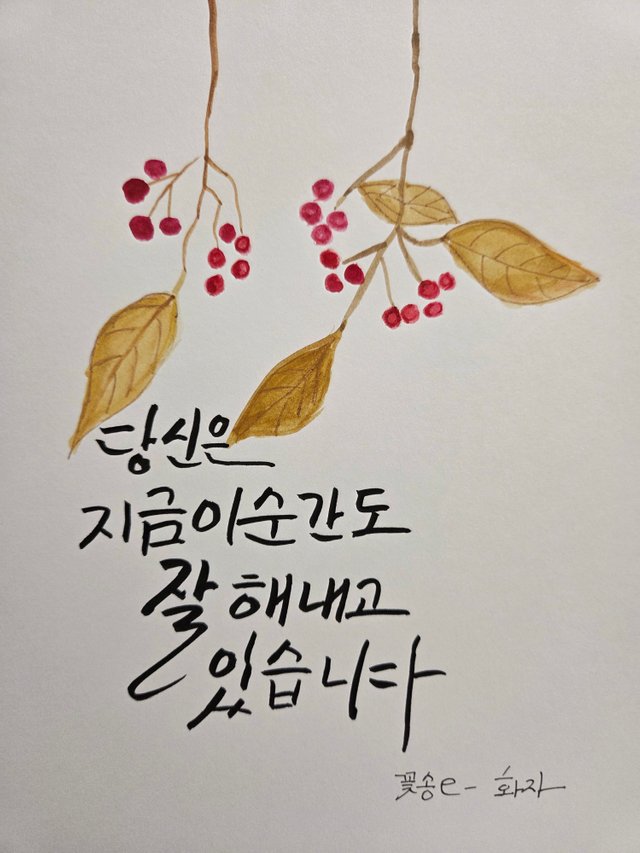 당신은
지금이순간도
잘 해내고
있습니다
꽃송e- 화자